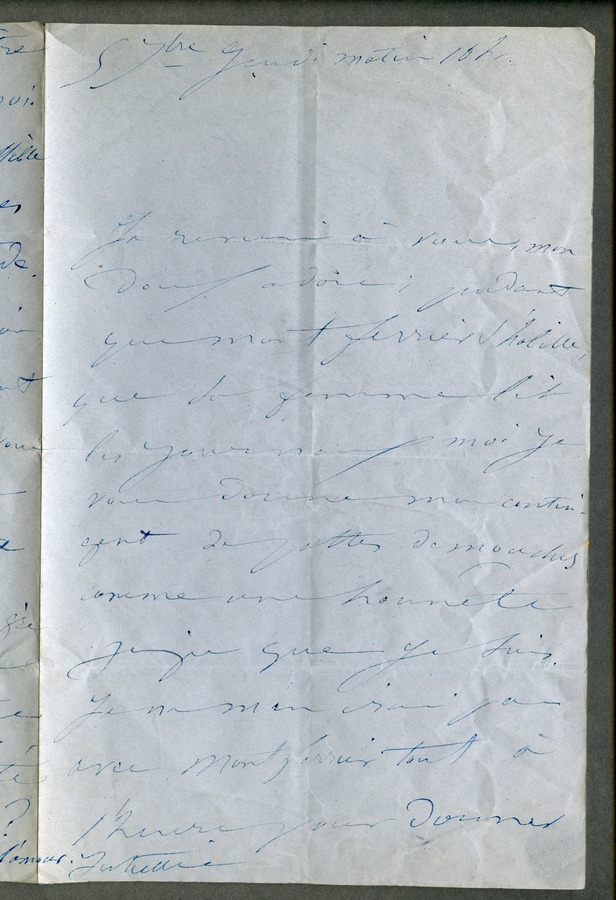 5 7bre Jeudi matin 10h.
Je reviens à vous, mon
doux adoré; pendant
que Montferrier s'habille,
que sa femme lit
les journaux, moi je
vous donne mon contin-
gent de pattes de mouches
comme une honnête
juju que je suis.
Je ne m'en irai pas
avec Montferrier tout à
l'heure pour donner
l'amour. Juliette